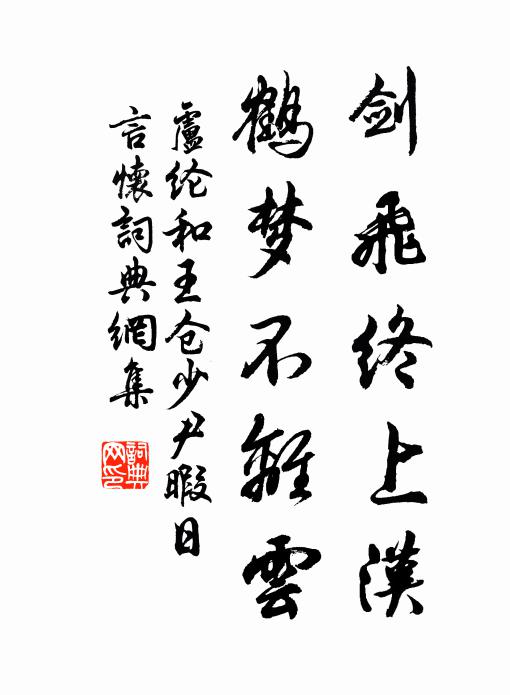 剑飛终上漢
鹤梦不離雲
盧纶和王仓少尹暇日
言懷詞典網集
詞典
网印